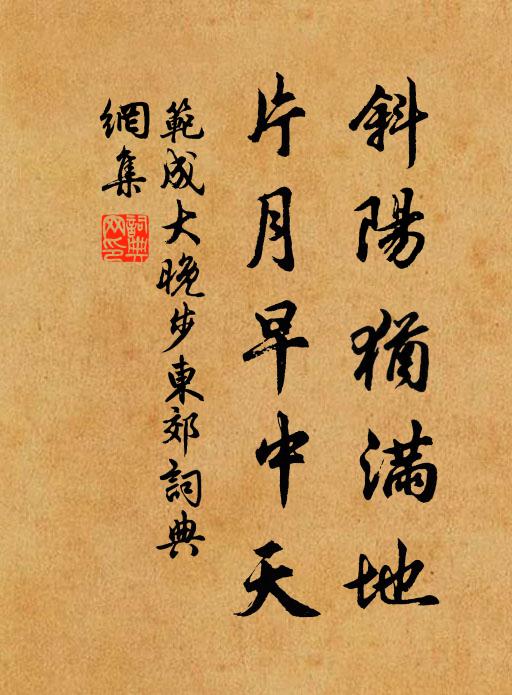 斜陽猶滿地
片月早中天
範成大晚步東郊詞典
網集
詞典網印